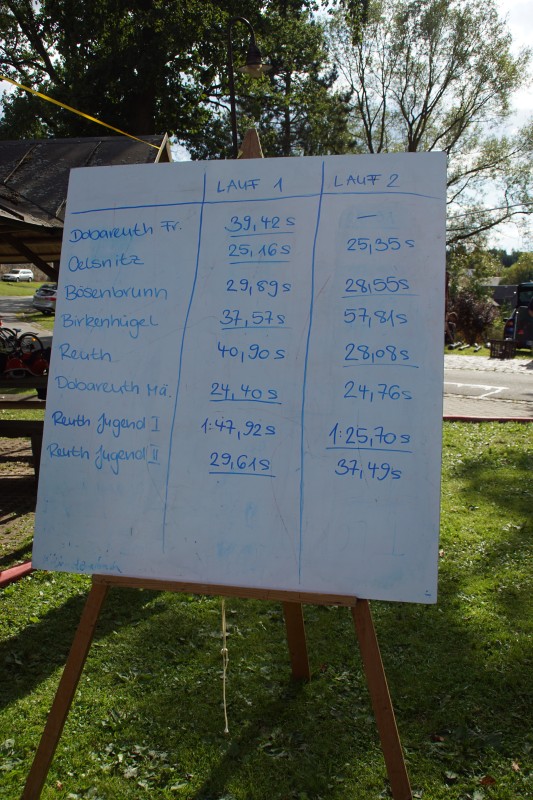 LAUF 1 LAUF 2
Dobareuth Fr. 39,42s –
Oelsnitz 25,16s 25,35s
Bösenbrunn 29,89s 28,55s
Birkenhügel 37,57s 57,81s
Reuth 40,90s 28,08s
Dobareuth Mä. 24,40s 24,76s
Reuth Jugend I 1:47,92s 1:25,70s
Reuth Jugend II 29,61s 37,49s